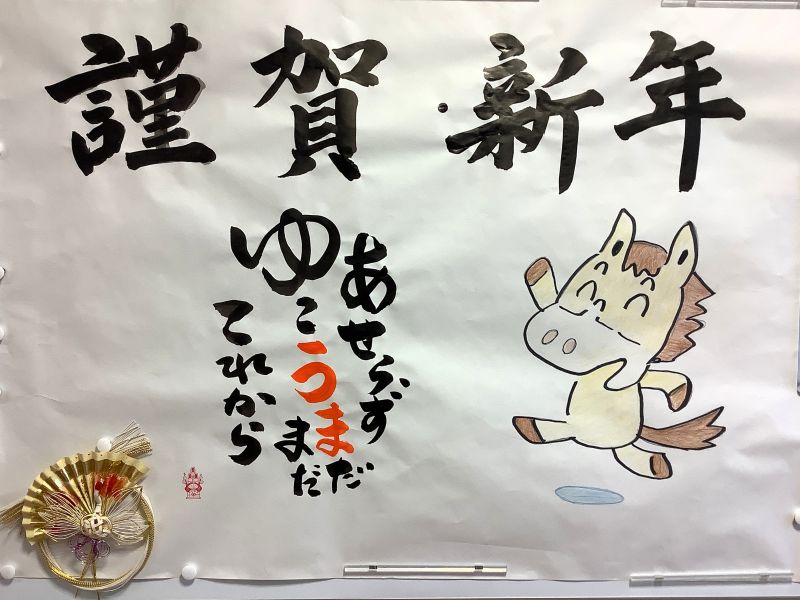 謹賀新年
あせらず
ゆこうまだ
まだ
これから